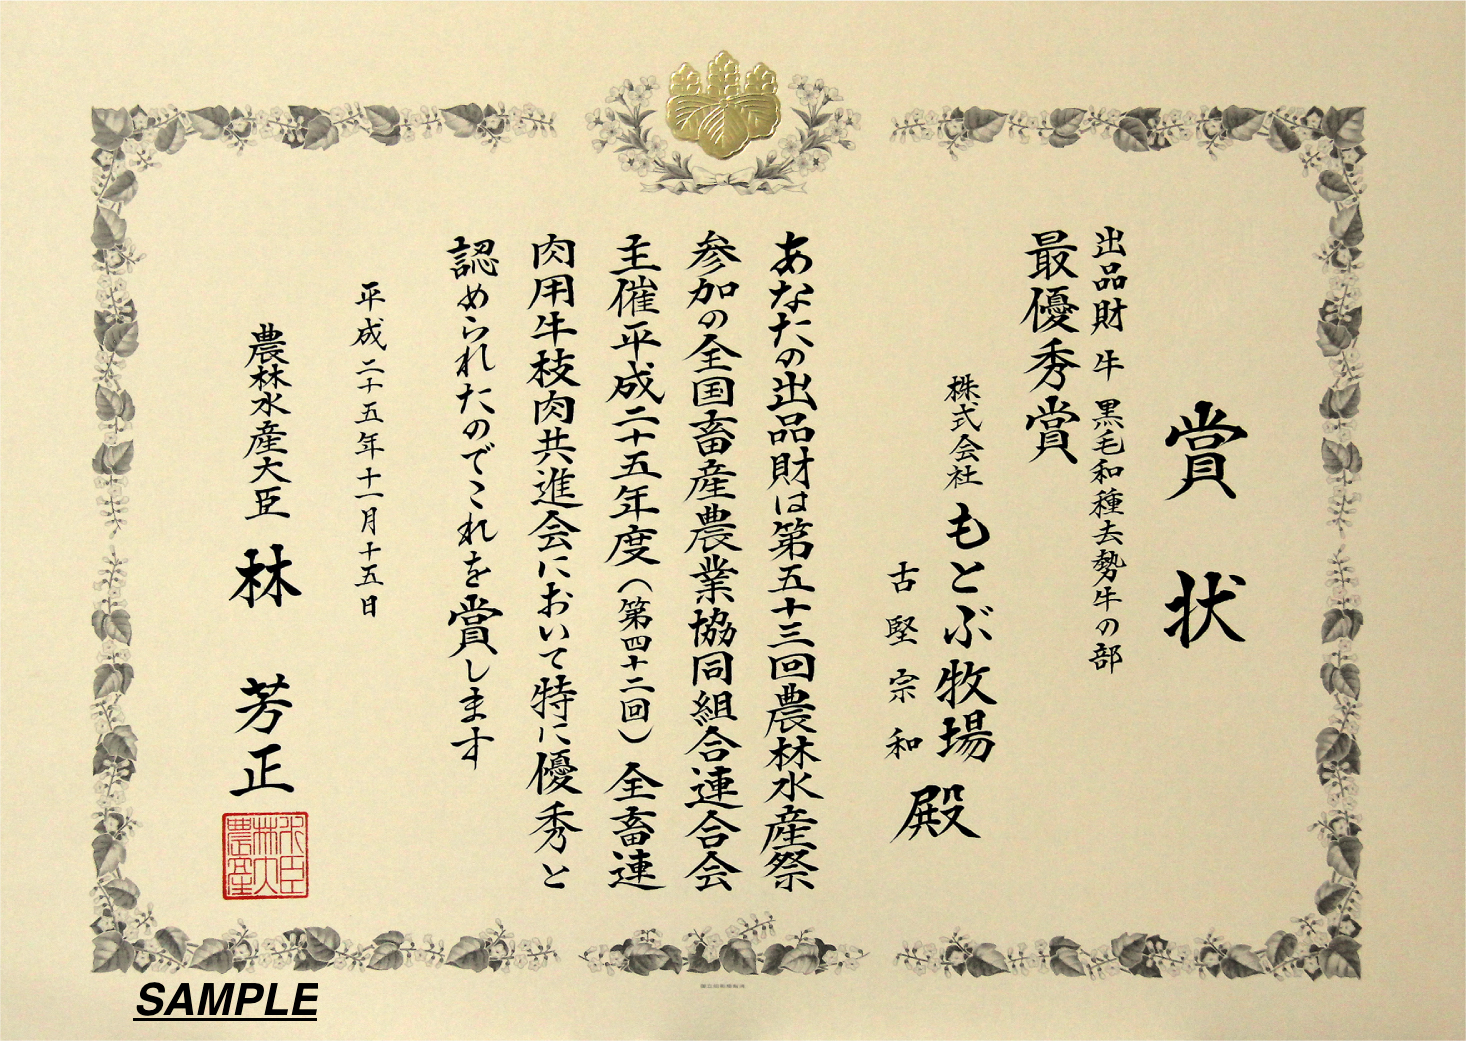 賞状
出品財 牛 黒毛和種去勢牛の部
最優秀賞
株式会社 もとぶ牧場
古堅宗和 殿
あなたの出品財は第五十三回農林水産祭
参加の全国畜産農業協同組合連合会
主催平成二十五年度(第四十二回)全畜連
肉用牛枝肉共進会において特に優秀と
認められたのでこれを賞します
平成二十五年十一月十五日
農林水産大臣 林 芳正
農林水産大臣
SAMPLE